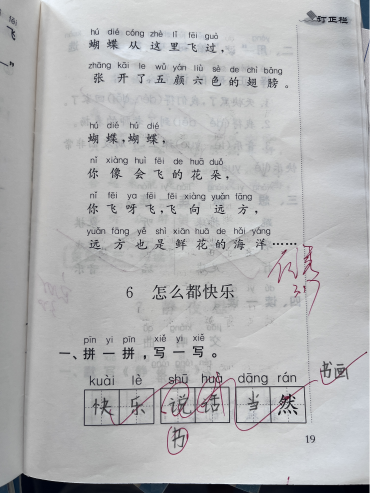 订正栏
hú dié cóng zhè lǐ fēi guò
蝴蝶从这里飞过，
zhāng kāi le wǔ yán liù sè de chì bǎng
张开了五颜六色的翅膀。
hú dié hú dié
蝴蝶，蝴蝶，
nǐ xiàng huì fēi de huā duǒ
你像会飞的花朵，
nǐ fēi ya fēi fēi xiàng yuǎn fāng
你飞呀飞，飞向远方，
yuǎn fāng yě shì xiān huā de hǎi yáng
远方也是鲜花的海洋……
6 怎么都快乐
pīn yi pīn xiě yi xiě
一、拼一拼，写一写。
kuài lè shū huà dāng rán
快乐 说话 当然 书画
书
19